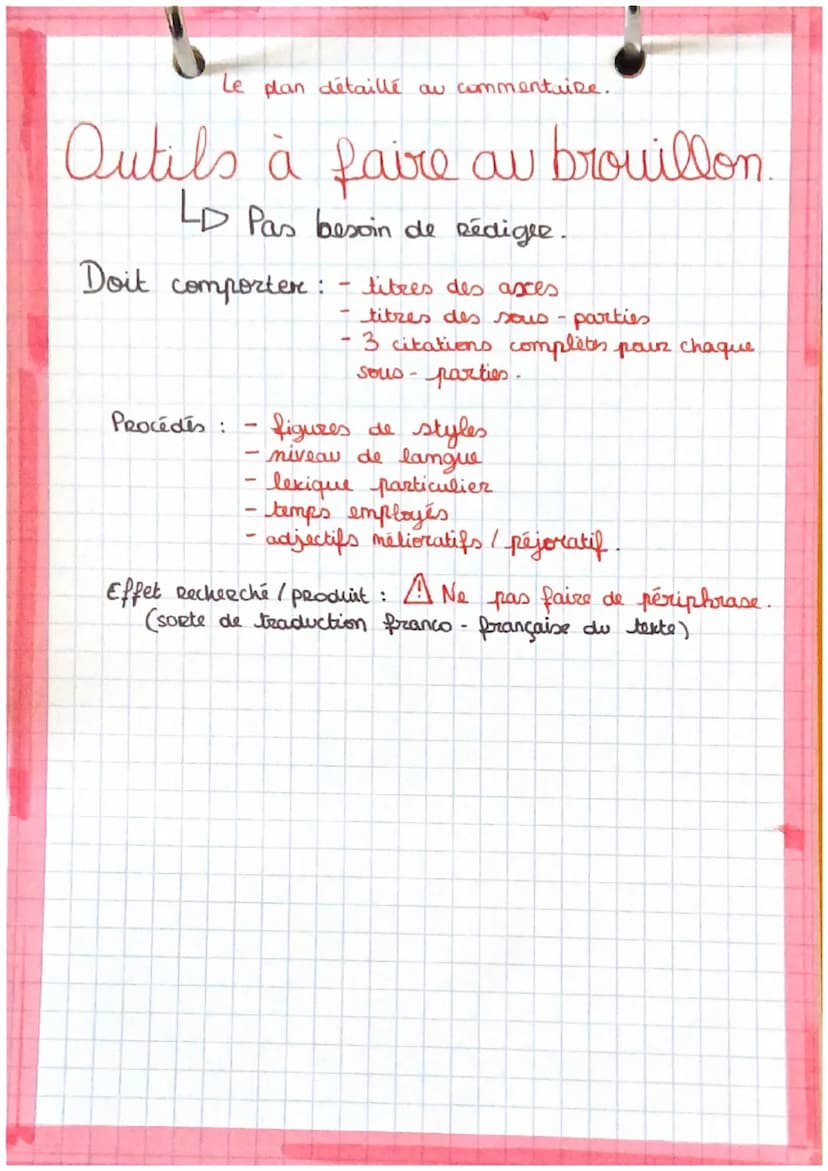 Le plan détaillé au commentaire.
Outils à faire au brouillon.
↳ Pas besoin de rédiger.
Doit comporter : - titres des axes
- titres des sous-parties
- 3 citations complètes pour chaque
sous-parties.
Procédés : - figures de styles
- niveau de langue
- lexique particulier
- temps employés
- adjectifs mélioratifs / péjoratif.
Effet recherché / produit : ⚠ Ne pas faire de périphrase.
(sorte de traduction franco-française du texte)